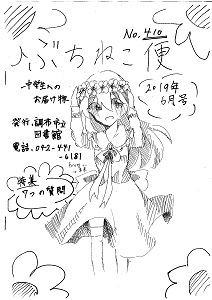 No.410
ぶちねこ便
中学生への
お届け物
2019年
6月号
発行.調布市立
図書館
電話.042-441
-6181
特集
7つの質問